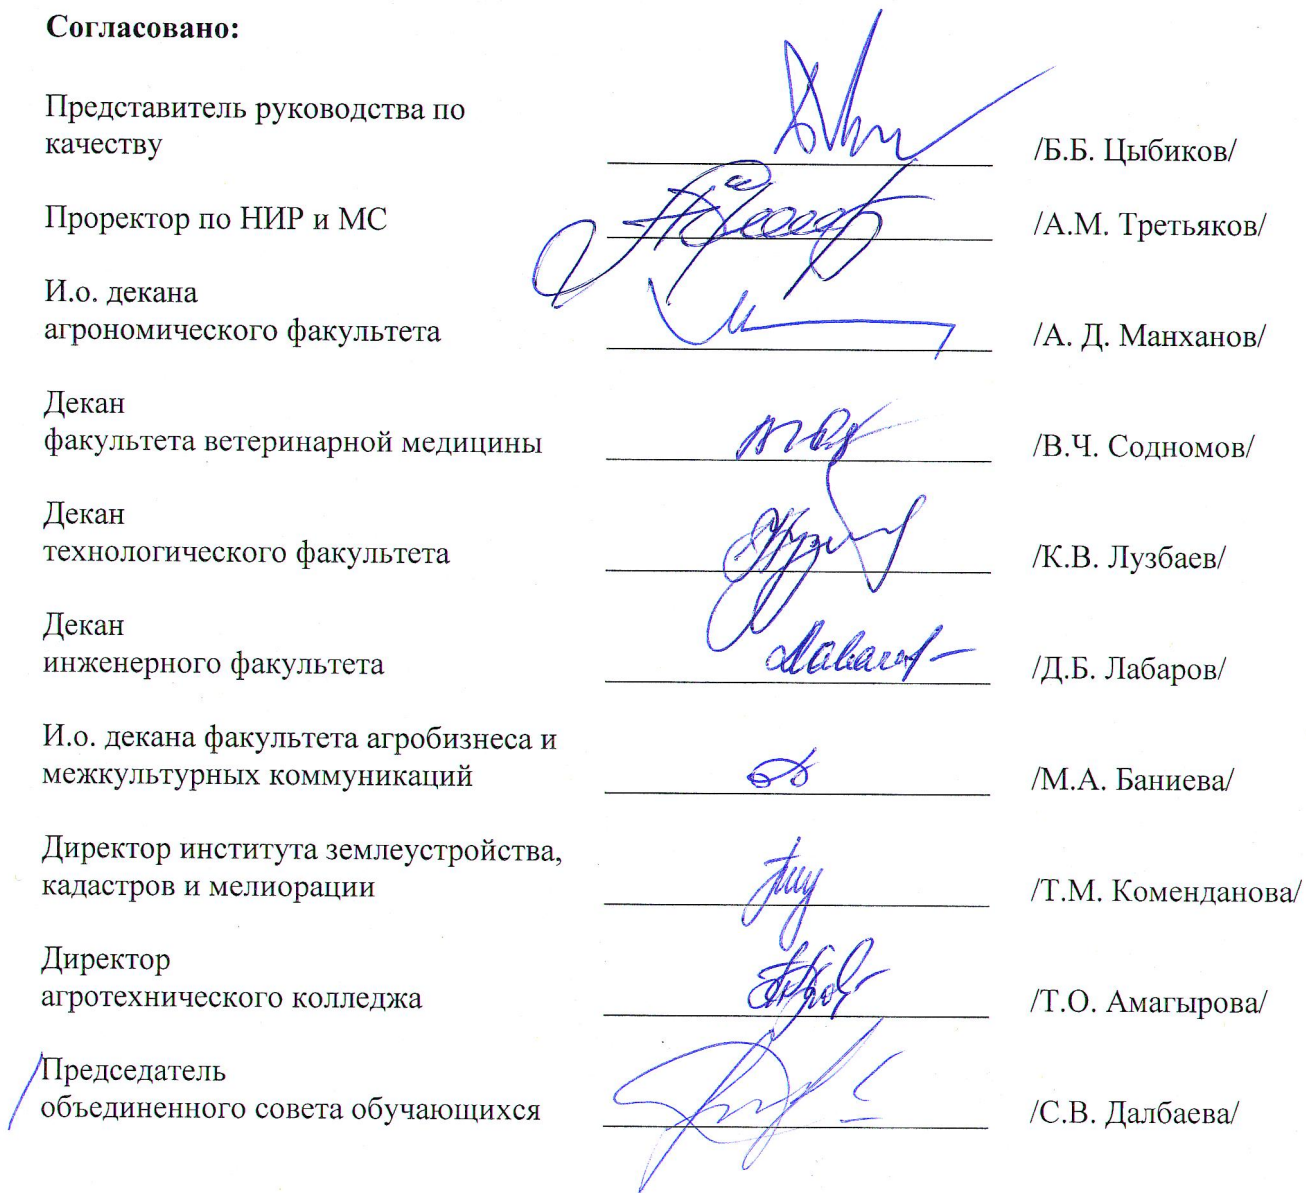 Согласовано:
Представитель руководства по
качеству /Б.Б. Цыбиков/
Проректор по НИР и МС /А.М. Третьяков/
И.о. декана
агрономического факультета /А. Д. Манханов/
Декан
факультета ветеринарной медицины /В.Ч. Содномов/
Декан
технологического факультета /К.В. Лузбаев/
Декан
инженерного факультета /Д.Б. Лабаров/
И.о. декана факультета агробизнеса и
межкультурных коммуникаций /М.А. Баниева/
Директор института землеустройства,
кадастров и мелиорации /Т.М. Коменданова/
Директор
агротехнического колледжа /Т.О. Амагырова/
Председатель
объединенного совета обучающихся /С.В. Далбаева/